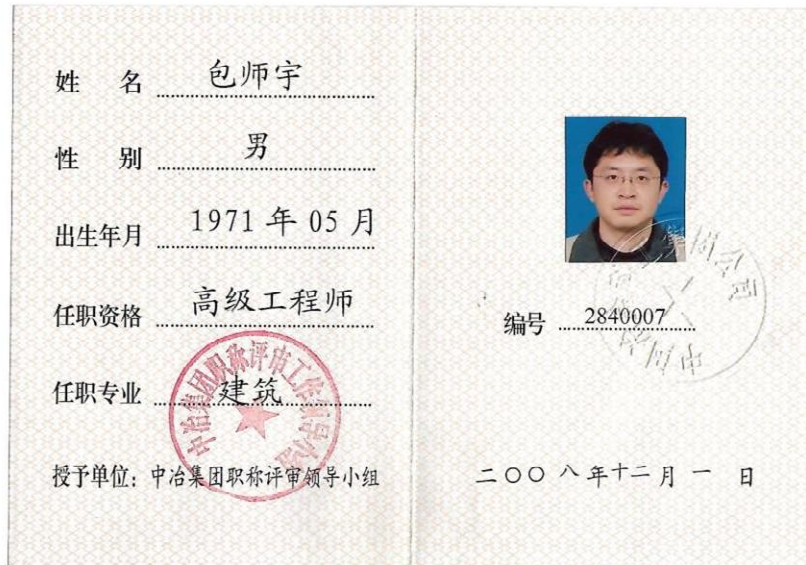 姓 名 包师宇
性 别 男
出生年月 1971 年 05 月
任职资格 高级工程师
任职专业 建筑
中冶集团职称评审工作领导小组
授予单位：中冶集团职称评审领导小组
编号 2840007
二〇〇八年十二月一日